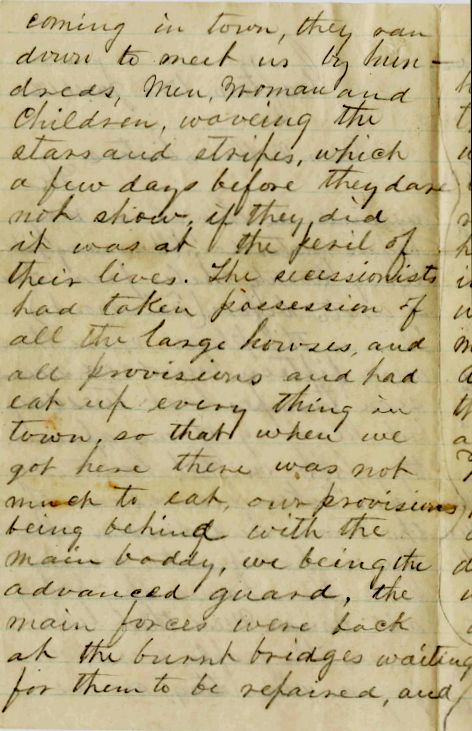 coming in town, they ran
down to meet us by hun-
dreds, Men, Woman and
Children, waveing the
stars and stripes, which
a few days before they dare
not show, if they did
it was at the peril of
their lives. The secessionists
had taken possession of
all the large howses, and
all provisions and had
eat up every thing in
town, so that when we
got here there was not
much to eat, our provisions
being behind with the
main boddy, we being the
advanced guard, the
main forces were back
at the burnt bridges waiting
for them to be repaired, and